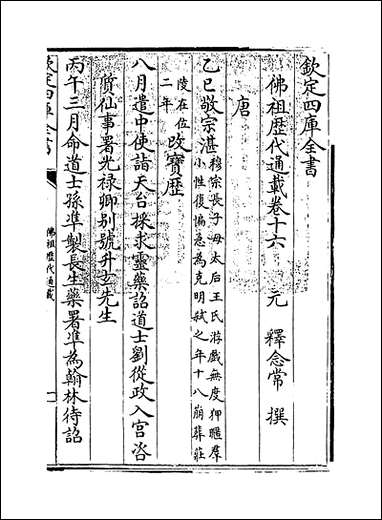 欽定四庫全書
佛祖歷代通載卷十六
元 釋念常 撰
唐
乙巳敬宗湛穆宗長子母太后王氏游戲無度狎暱羣
小性復褊急為克明弒之年十八崩葬莊
陵在位
二年改寶歷
八月遣中使詣天台採求靈藥詔道士劉從政入宫咨
質仙事署光禄卿别號升𤣥先生
丙午三月命道士孫準製長生藥署準為翰林待詔
欽定四庫全書
佛祖歷代通載